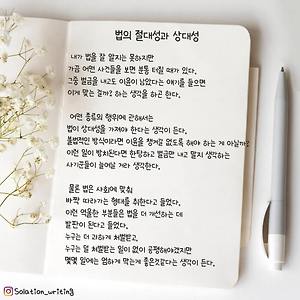 법의 절대성과 상대성
내가 법을 잘 알지는 못하지만
가끔 어떤 사건들을 보면 분통 터질 때가 있다.
그중 벌금을 내고도 이윤이 남았다는 얘기를 들으면
이게 맞는 걸까? 하는 생각을 하곤 한다.
어떤 종류의 행위에 관해서는
법이 상대성을 가져야 한다는 생각이 든다.
불법적인 방식이라면 이윤을 챙겨갈 없도록 해야 하는 게 아닐까?
이런 일이 방치된다면 한탕하고 벌금만 내고 말지 생각하는
사기꾼들이 늘어날 거라 생각한다.
물론 법은 사회에 맞춰
바짝 따라가는 형태를 취한다고 들었다.
이런 억울한 부분들은 법을 더 개선하는 데
발판이 된다고 들었다.
누구는 더 과하게 처벌받고,
누구는 덜 처벌받는 일이 없이 공평해야겠지만
몇몇 일에는 엄하게 막는게 좋은것같다는 생각이 든다.
@Solation_writing